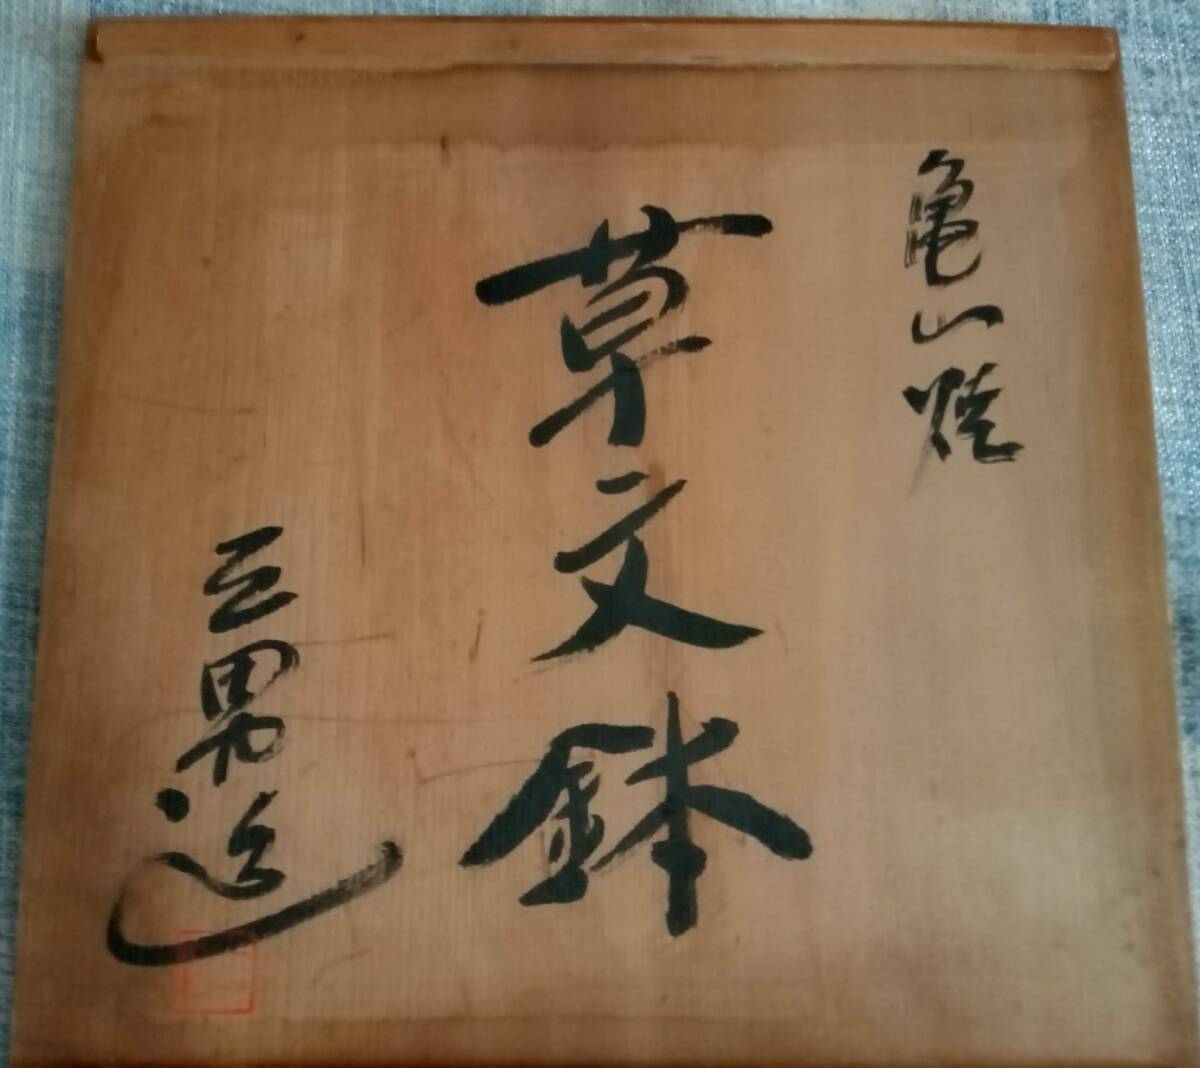 亀山焼
草文鉢
三男造